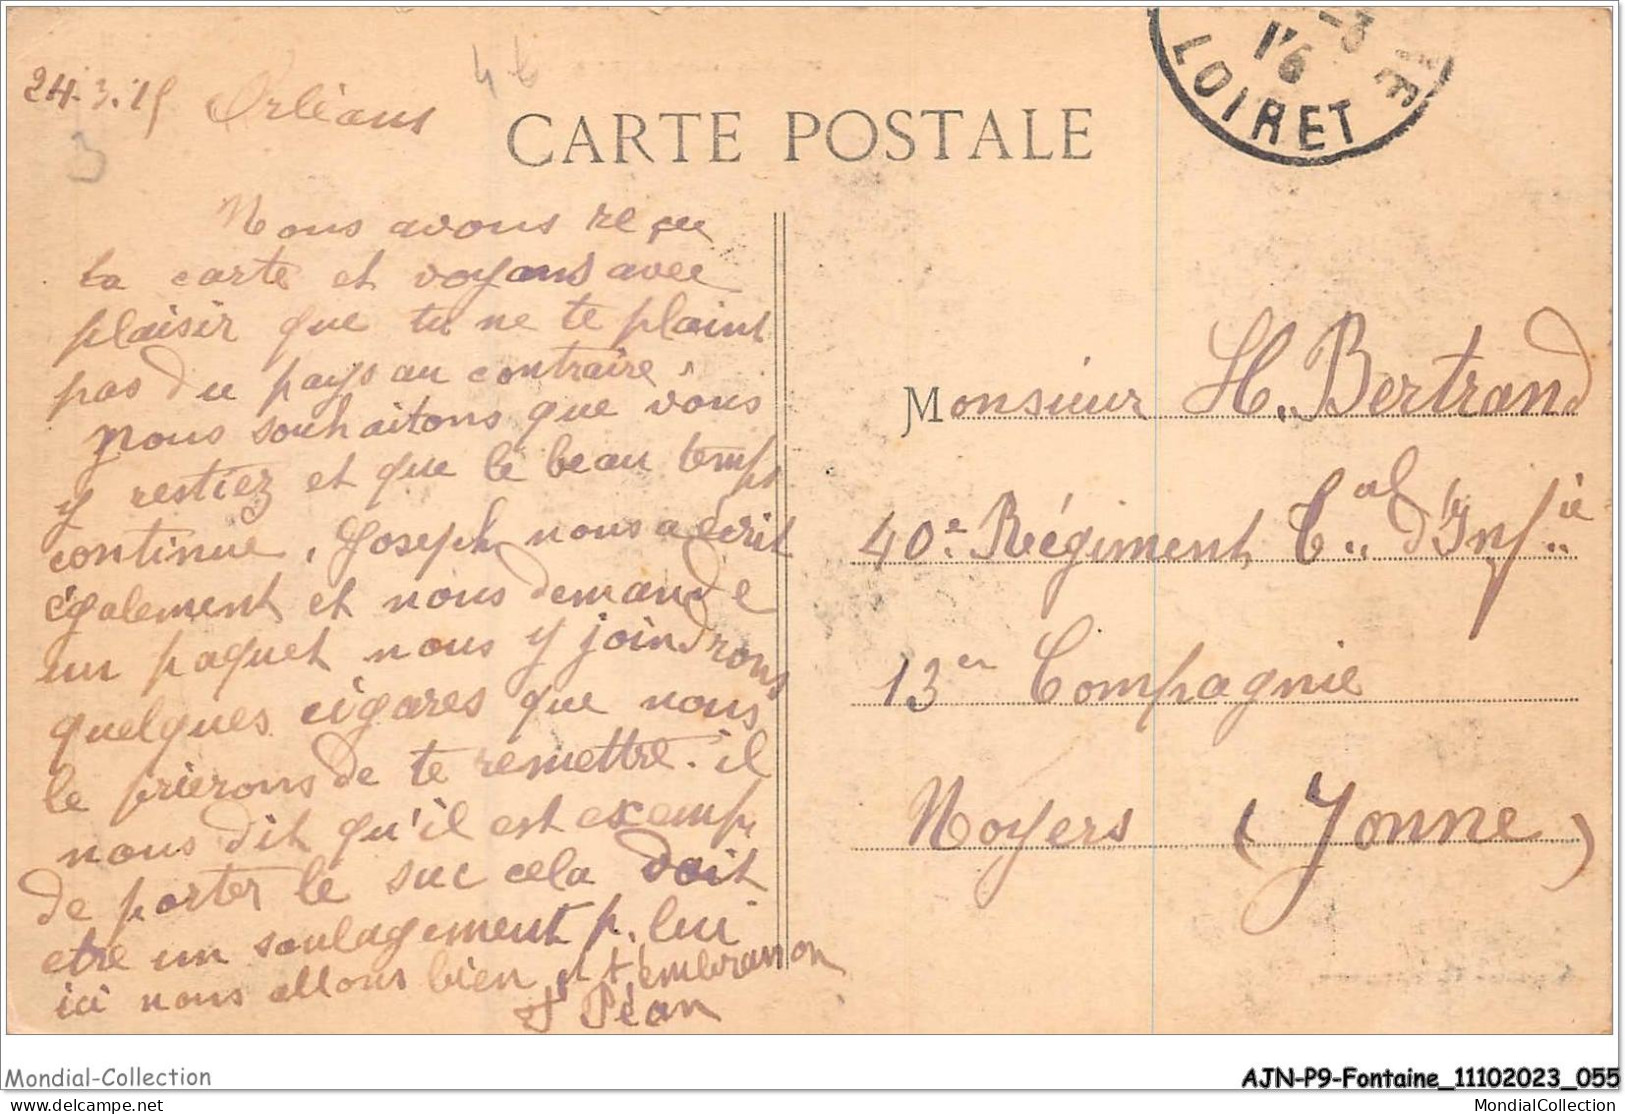 24.3.15 Orléans
46
3
CARTE POSTALE
-3
16
LOIRET
Nous avons reçu
ta carte et voyons avec
plaisir que tu ne te plaint
pas du pays au contraire,
nous souhaitons que vous
y restiez et que le beau temps
continue, Joseph nous a écrit
également et nous demande
un paquet nous y joindrons
quelques cigares que nous
le prierons de te remettre. il
nous dit qu'il est exemp
de porter le sac cela doit
etre un soulagement p. lui
ici nous allons bien et t'embrasson
Péan
Monsieur H. Bertrand
40e Régiment Cal d'Infie
13er Compagnie
Noyers (Yonne)
Mondial-Collection
AJN-P9-Fontaine_11102023_055
mondial-collection
MondialCollection